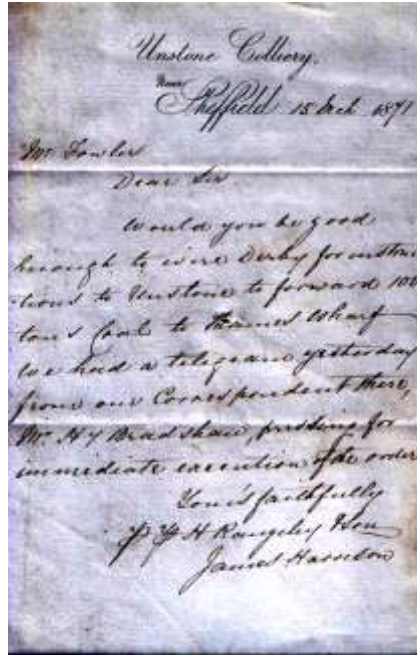 Unstone Colliery,
Near
Sheffield 15 Mch 1871
Mr Fowler
Dear Sir
Would you be good
enough to wire Derby for instruc
tions to Unstone to forward 100
tons Coal to Thames Wharf
we had a telegram yesterday
from our Correspondent there,
Mr Hy Bradshaw, pressing for
immediate execution of the order
Yours faithfully
H Rangeley & Son
James Harrison